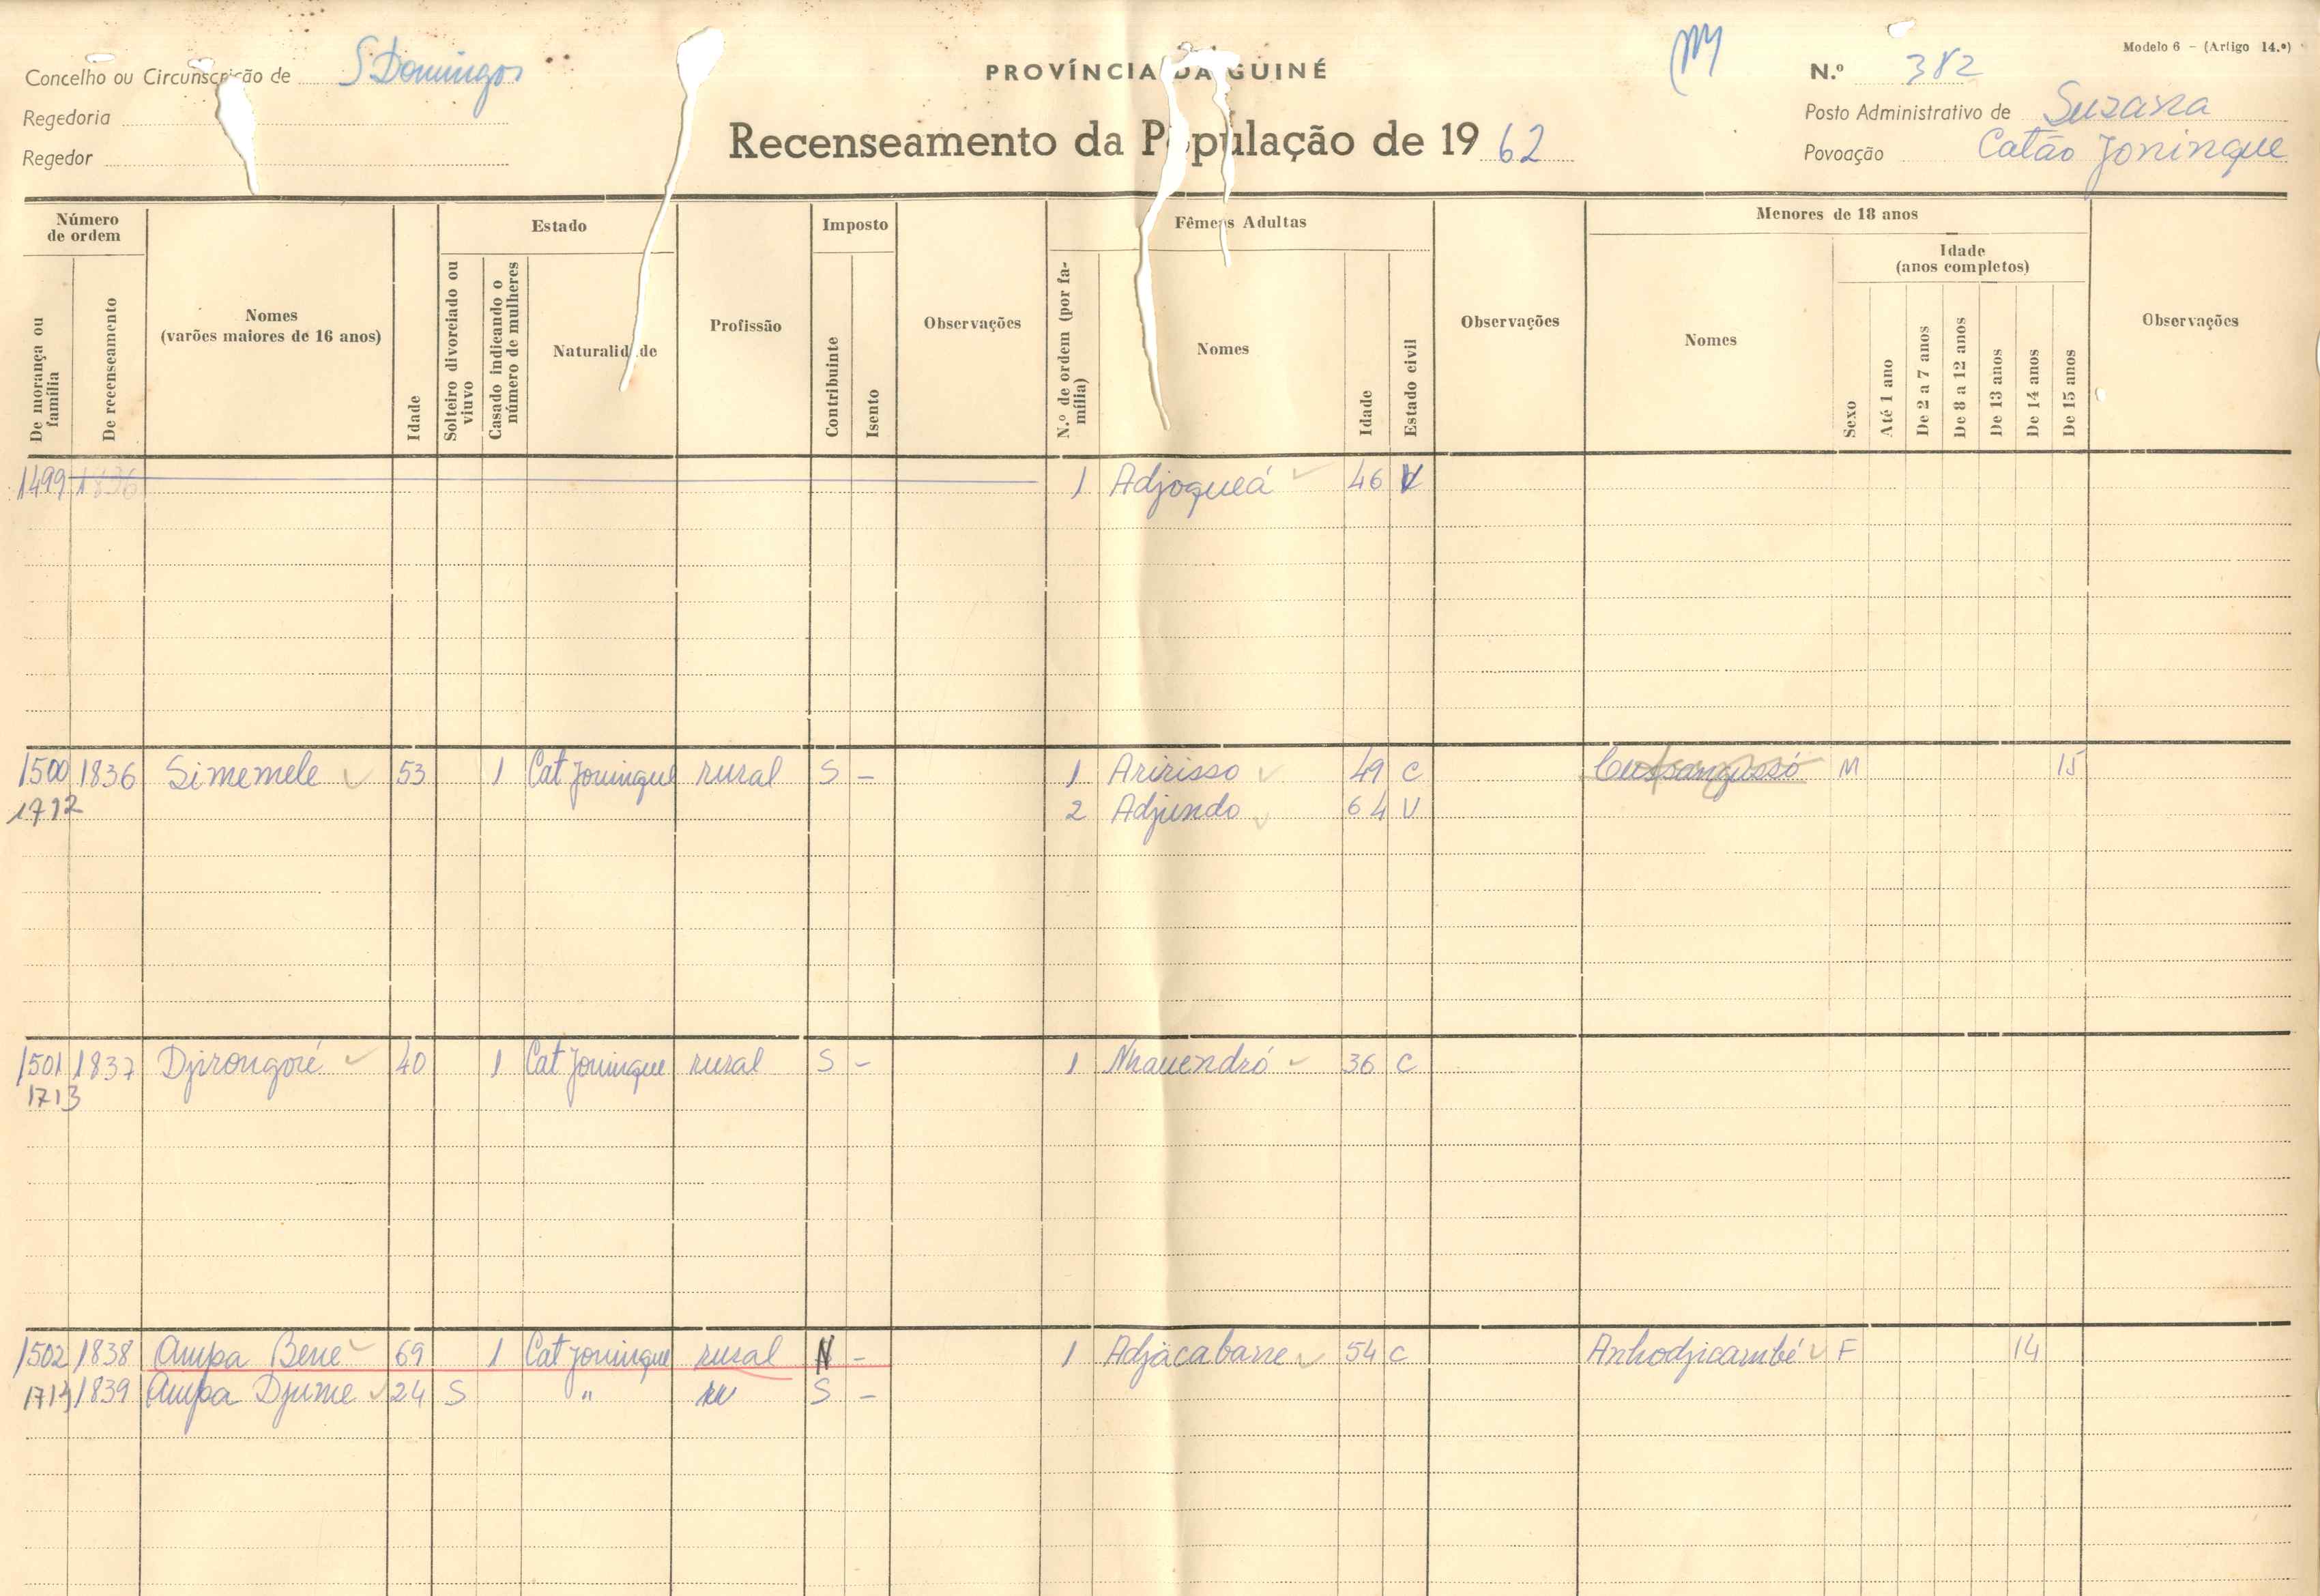 Modelo 6 - (Artigo 14.º)
Concelho ou Circunscrição de S Domingos
PROVÍNCIA DA GUINÉ
N.º 382
Regedoria
Posto Administrativo de Suzana
Regedor
Recenseamento da População de 1962
Povoação Catão Joninque
Número de ordem
De morança ou família
De recenseamento
Nomes (varões maiores de 16 anos)
Idade
Estado
Solteiro divorciado ou viuvo
Casado indicando o número de mulheres
Naturalidade
Profissão
Imposto
Contribuinte
Isento
Observações
Fêmeas Adultas
N.º de ordem (por família)
Nomes
Idade
Estado civil
Observações
Menores de 18 anos
Nomes
Sexo
Idade (anos completos)
Até 1 ano
De 2 a 7 anos
De 8 a 12 anos
De 13 anos
De 14 anos
De 15 anos
Observações
1499 1836 1 Adjoqueá 46 V
1500 1836 Simemele 53 1 Cat Joninque rural S - 1 Aririsso 49 C Cussangussó M 15
1712 2 Adjundo 64 V
1501 1837 Djirongoré 40 1 Cat Joninque rural S - 1 Nhauendró 36 C
1713
1502 1838 Ampa Bene 69 1 Cat Joninque rural N - 1 Adjacabane 54 C Anhodjicambé F 14
1714 1839 Ampa Djume 24 S " S -